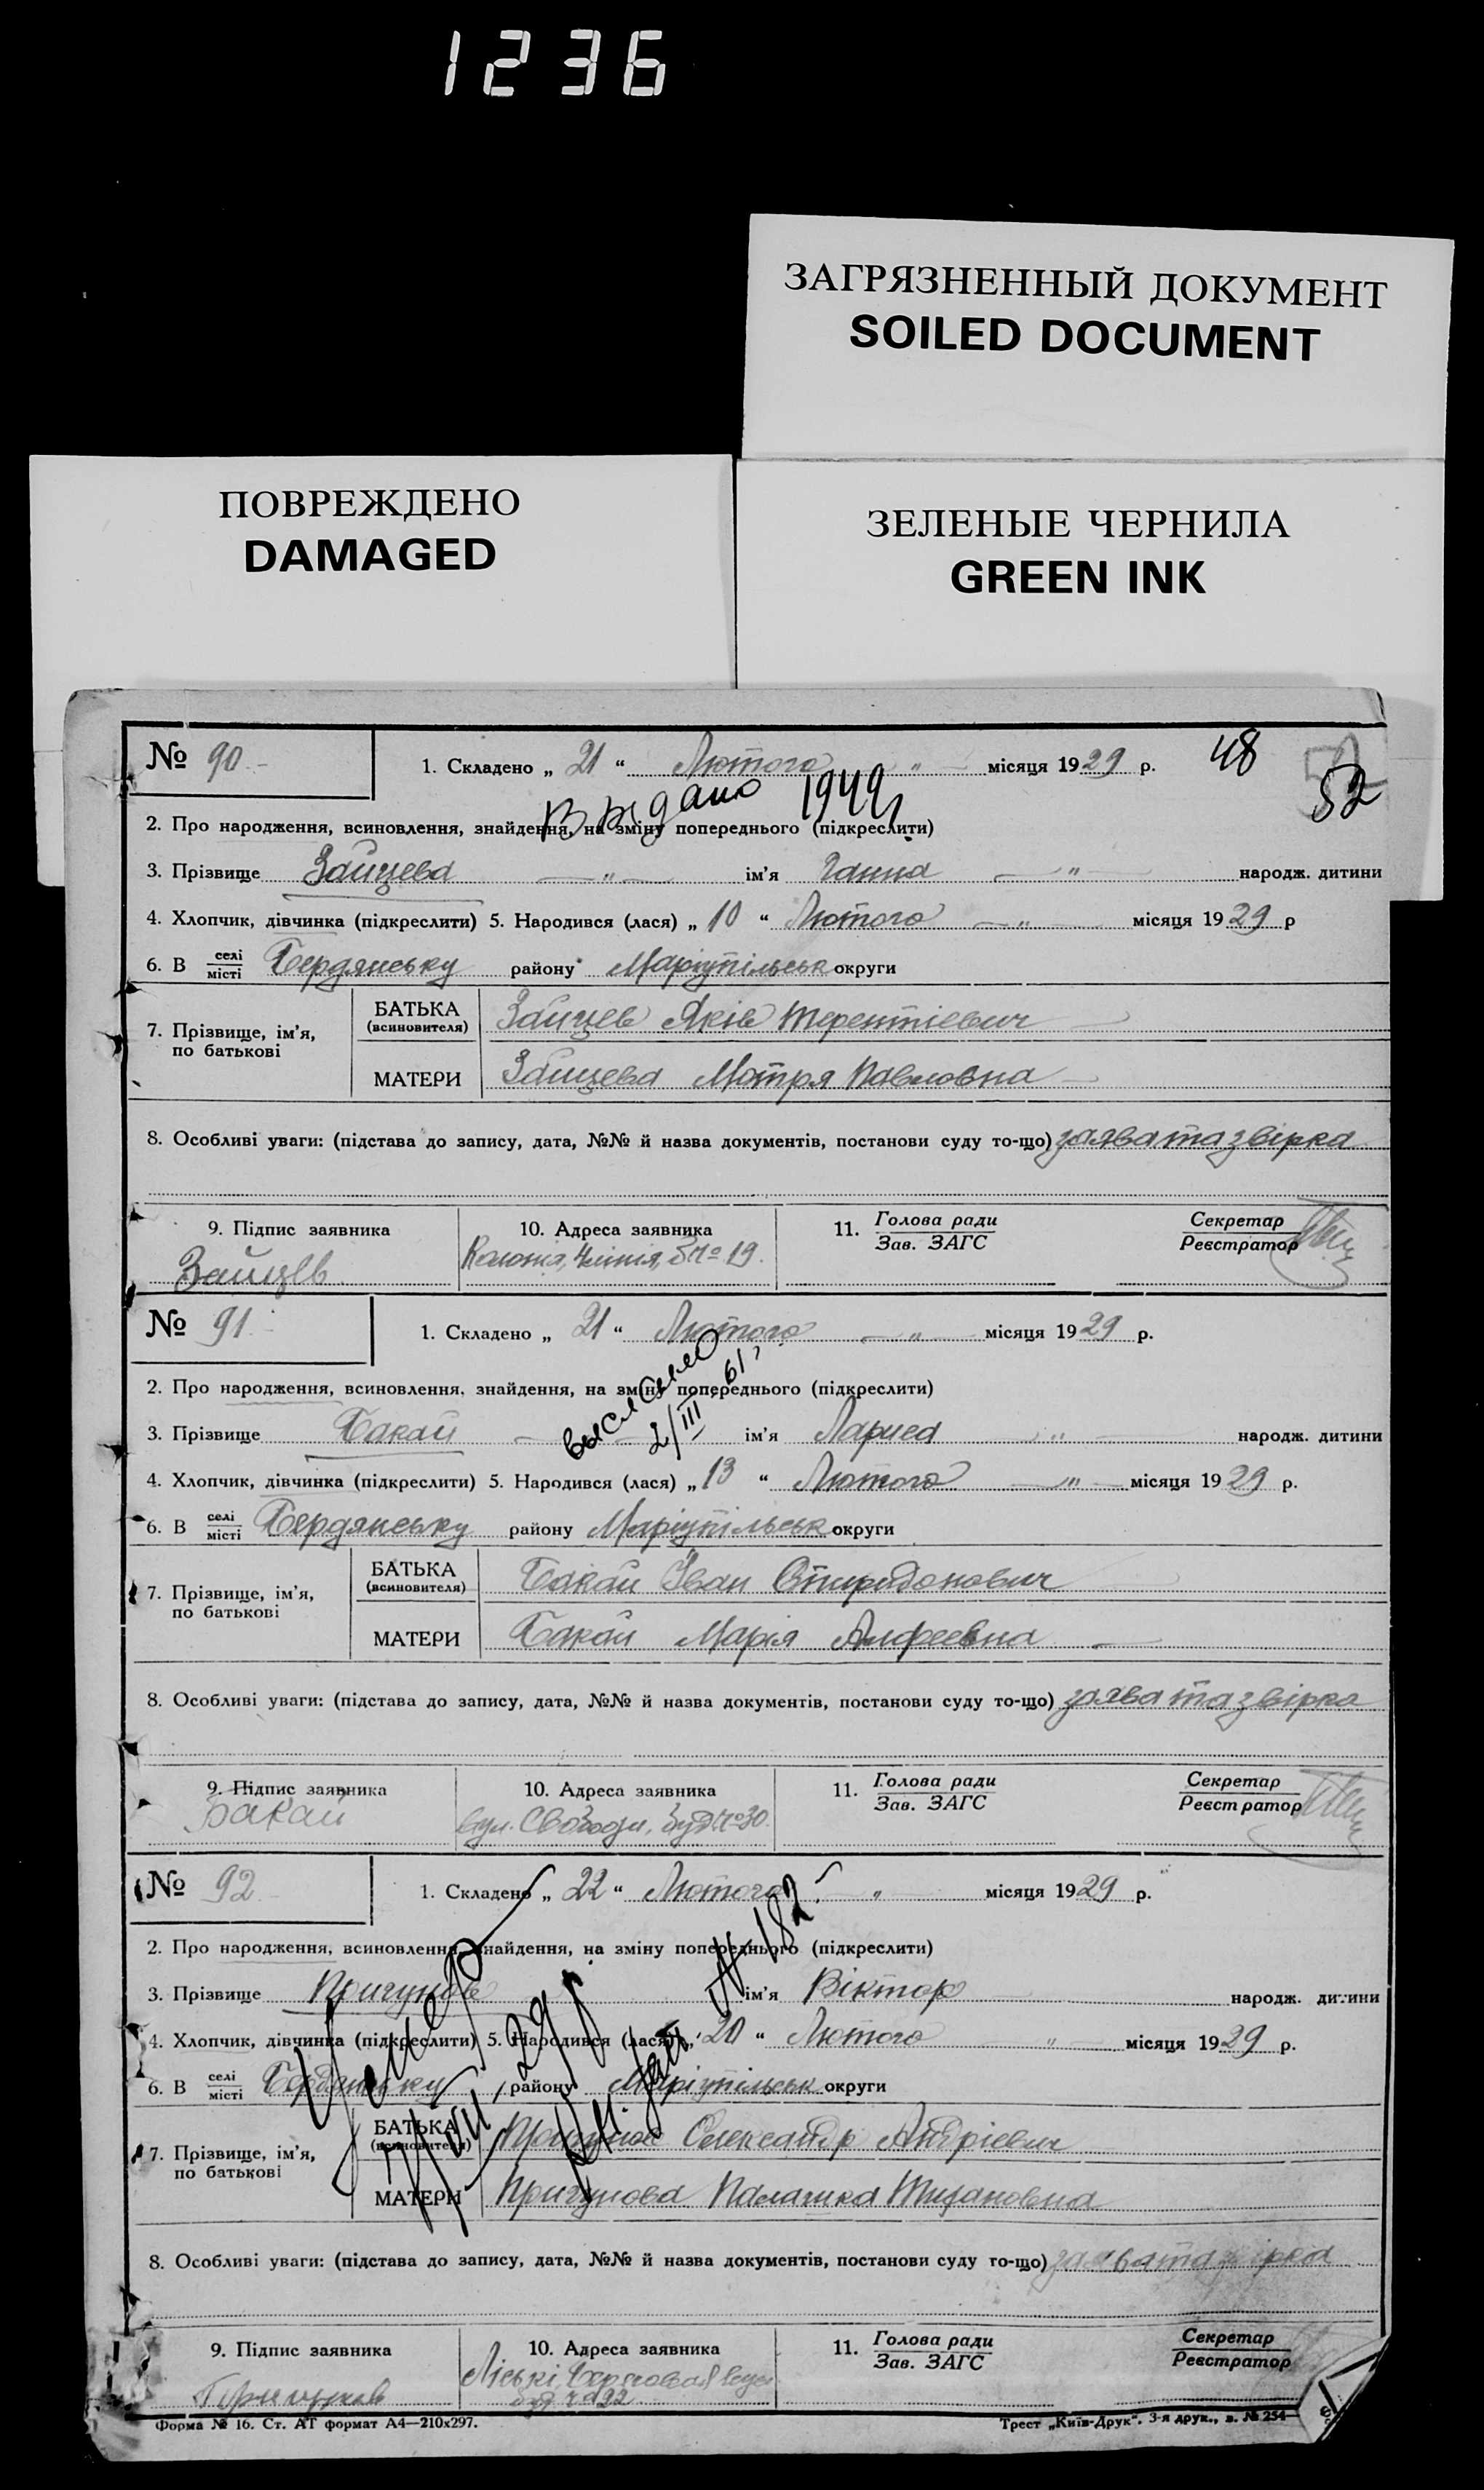 1236
ЗАГРЯЗНЕННЫЙ ДОКУМЕНТ
SOILED DOCUMENT
ПОВРЕЖДЕНО
DAMAGED
ЗЕЛЕНЫЕ ЧЕРНИЛА
GREEN INK
№ 90 1. Складено „ 21 “ Лютого „ місяця 1929 р. 48
52
Видано 1949
2. Про народження, всиновлення, знайдення, на зміну попереднього (підкреслити)
3. Прізвище Зайцева „ ім'я Ганна „ народж. дитини
4. Хлопчик, дівчинка (підкреслити) 5. Народився (лася) „ 10 “ Лютого „ місяця 1929 р
6. В селі/місті Бердянську району Маріупільськ округи
7. Прізвище, ім'я, по батькові
БАТЬКА (всиновителя) Зайцев Яків Терентіевич
МАТЕРИ Зайцева Мотря Павловна
8. Особливі уваги: (підстава до запису, дата, №№ й назва документів, постанови суду то-що) заява та звірка
9. Підпис заявника 10. Адреса заявника 11. Голова ради/Зав. ЗАГС Секретар/Реєстратор
Зайцев Колонія, 4 лінія, № 19.
№ 91 1. Складено „ 21 “ Лютого „ місяця 1929 р.
выслано 2/III 61г
2. Про народження, всиновлення, знайдення, на зміну попереднього (підкреслити)
3. Прізвище Бакай ім'я Лариса „ народж. дитини
4. Хлопчик, дівчинка (підкреслити) 5. Народився (лася) „ 13 “ Лютого „ місяця 1929 р.
6. В селі/місті Бердянську району Маріупільськ округи
7. Прізвище, ім'я, по батькові
БАТЬКА (всиновителя) Бакай Іван Спиридонович
МАТЕРИ Бакай Марія Алфеевна
8. Особливі уваги: (підстава до запису, дата, №№ й назва документів, постанови суду то-що) заява та звірка
9. Підпис заявника 10. Адреса заявника 11. Голова ради/Зав. ЗАГС Секретар/Реєстратор
Бакай вул. Свободи, буд. № 30.
№ 92 1. Складено „ 22 “ Лютого „ місяця 1929 р.
2. Про народження, всиновлення, знайдення, на зміну попереднього (підкреслити)
3. Прізвище Пригунов ім'я Віктор народж. дитини
4. Хлопчик, дівчинка (підкреслити) 5. Народився (лася) „ 20 “ Лютого „ місяця 1929 р.
6. В селі/місті Бердянську району Маріупільськ округи
Умер 29 р. № 182
7. Прізвище, ім'я, по батькові
БАТЬКА (всиновителя) Пригунов Олександр Андрієвич
МАТЕРИ Пригунова Палагика
8. Особливі уваги: (підстава до запису, дата, №№ й назва документів, постанови суду то-що) заява та звірка
9. Підпис заявника 10. Адреса заявника 11. Голова ради/Зав. ЗАГС Секретар/Реєстратор
Пригунов Ліскі, буд № 22
Форма № 16. Ст. АТ формат А4—210х297. Трест „Київ-Друк“. 3-я друк., з. № 254—